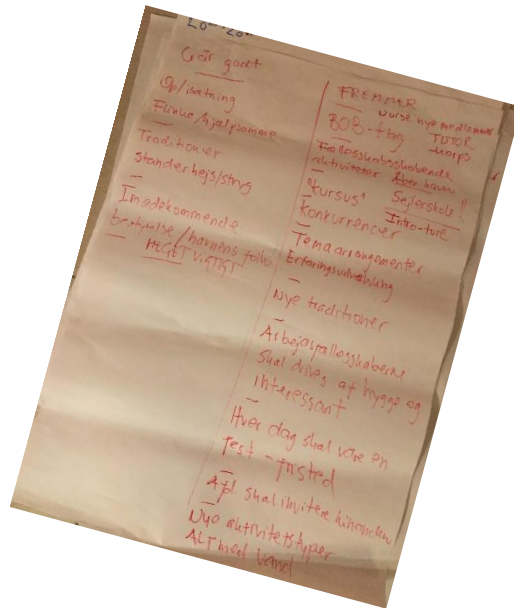 Går godt
Op/isætning
Flinke/hjælpsomme
Traditioner
standerhejs/stryg
Imødekommende
bestyrelse/havnens folk
MEGET VIGTIGT
FREMMER
nye medlemmer
BOB-flag
TUTOR
korps
Fællesskabsskabende
aktiviteter
Åben havn
"Kursus"
Sejlerskole!!
Konkurrencer
Intro-ture
Temaarrangementer
Erfaringsudveksling
Nye traditioner
Arbejdsfællesskaberne
skal drives af hygge og
interessant
Hver dag skal være en
fest-
Afd. skal invitere hinanden
Nye aktivitetstyper
ALT med vand